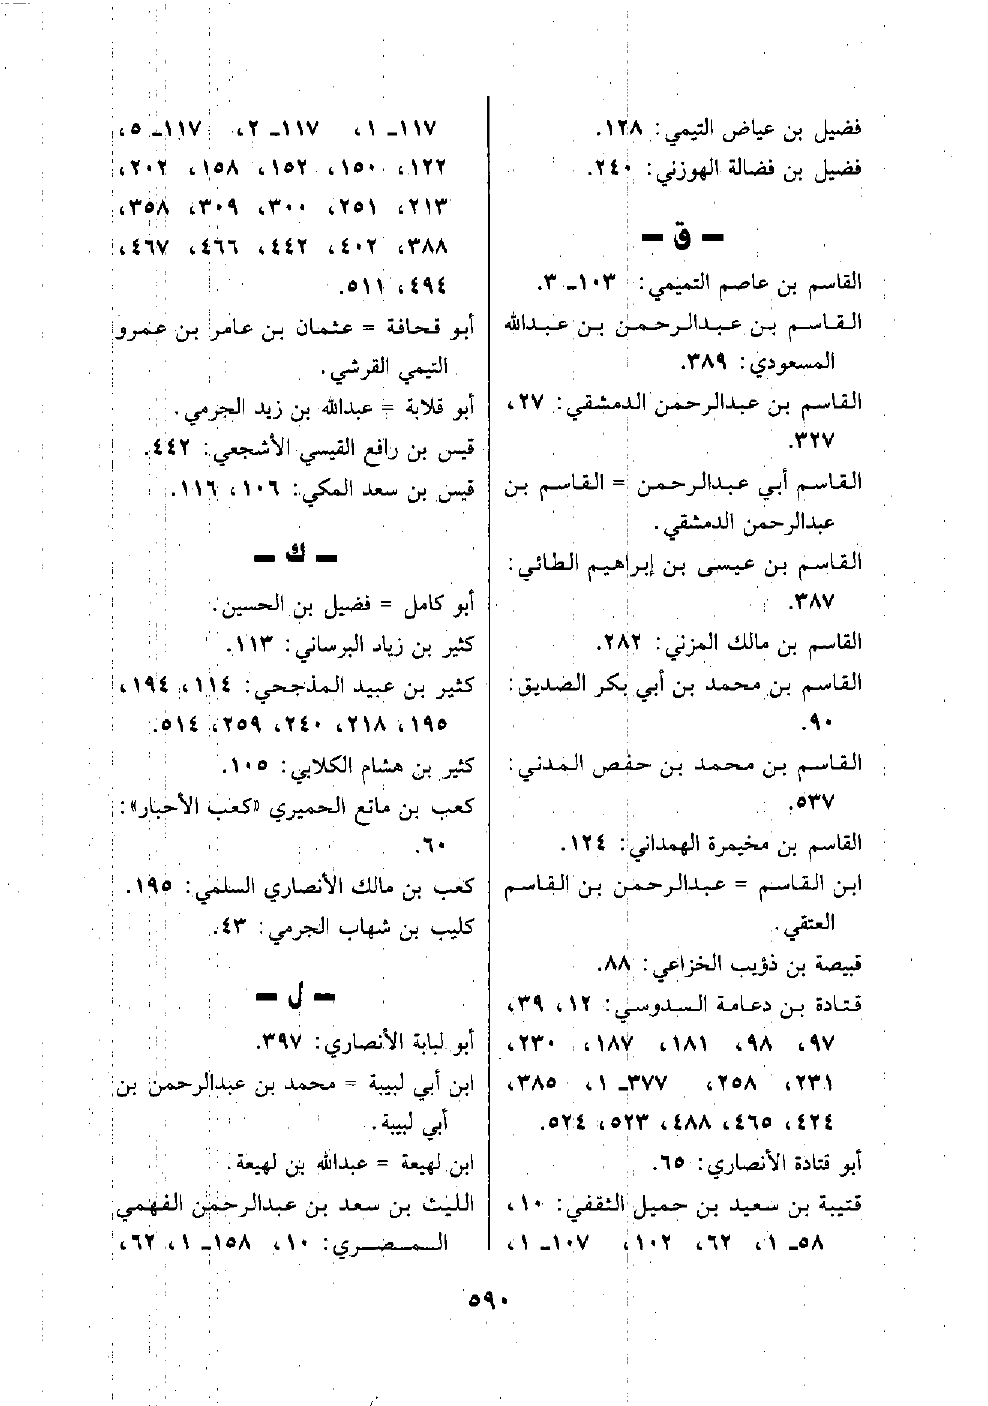 فضيل بن عياض التيمي: ١٢٨.
فضيل بن فضالة الهوزني: ٢٤٠.
– ق –
القاسم بن عاصم التميمي: ١٠٣ـ ٣.
القاسم بن عبدالرحمن بن عبدالله
المسعودي: ٣٨٩.
القاسم بن عبدالرحمن الدمشقي: ٢٧،
٣٢٧.
القاسم أبي عبدالرحمن = القاسم بن
عبدالرحمن الدمشقي.
القاسم بن عيسى بن إبراهيم الطائي:
٣٨٧.
القاسم بن مالك المزني: ٢٨٢.
القاسم بن محمد بن أبي بكر الصديق:
٩٠.
القاسم بن محمد بن حفص المدني:
٥٣٧.
القاسم بن مخيمرة الهمداني: ١٢٤.
ابن القاسم = عبدالرحمن بن القاسم
العتقي.
قبيصة بن ذؤيب الخزاعي: ٨٨.
قتادة بن دعامة السدوسي: ١٢، ٣٩،
٩٧، ٩٨، ١٨١، ١٨٧، ٢٣٠،
٢٣١، ٢٥٨، ٣٧٧ـ ١، ٣٨٥،
٤٢٤، ٤٦٥، ٤٨٨، ٥٢٣، ٥٢٤.
أبو قتادة الأنصاري: ٦٥.
قتيبة بن سعيد بن حميل الثقفي: ١٠،
٥٨ـ ١، ٦٢، ١٠٢، ١٠٧ـ ١،
١١٧ـ ١، ١١٧ـ ٢، ١١٧ـ ٥،
١٢٢، ١٥٠، ١٥٢، ١٥٨، ٢٠٢،
٢١٣، ٢٥١، ٣٠٠، ٣٠٩، ٣٥٨،
٣٨٨، ٤٠٢، ٤٤٢، ٤٦٦، ٤٦٧،
٤٩٤، ٥١١.
أبو قحافة = عثمان بن عامر بن عمرو
التيمي القرشي.
أبو قلابة = عبدالله بن زيد الجرمي.
قيس بن رافع القيسي الأشجعي: ٤٤٢.
قيس بن سعد المكي: ١٠٦، ١١٦.
– ك –
أبو كامل = فضيل بن الحسين.
كثير بن زياد البرساني: ١١٣.
كثير بن عبيد المذحجي: ١١٤، ١٩٤،
١٩٥، ٢١٨، ٢٤٠، ٢٥٩، ٥١٤.
كثير بن هشام الكلابي: ١٠٥.
كعب بن مانع الحميري «كعب الأحبار»:
٦٠.
كعب بن مالك الأنصاري السلمي: ١٩٥.
كليب بن شهاب الجرمي: ٤٣.
– ل –
أبو لبابة الأنصاري: ٣٩٧.
ابن أبي لبيبة = محمد بن عبدالرحمن بن
أبي لبيبة.
ابن لهيعة = عبدالله بن لهيعة.
الليث بن سعد بن عبدالرحمن الفهمي
المصري: ١٠، ١٥٨ـ ١، ٦٢،
٥٩٠